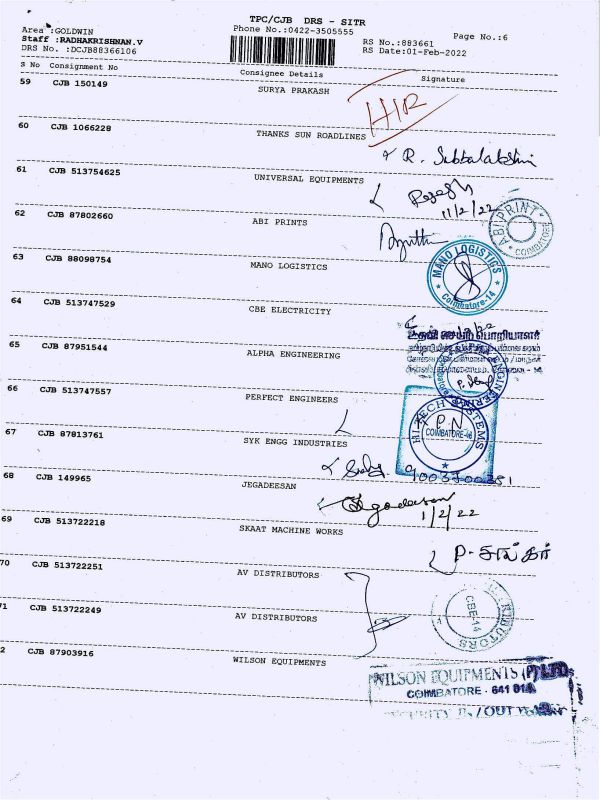 TPC/CJB DRS - SITR
Area :GOLDWIN
Phone No.:0422-3505555
Page No.:6
Staff :RADHAKRISHNAN.V
RS No.:883661
DRS No. :DCJB88366106
RS Date:01-Feb-2022
S No Consignment No Consignee Details Signature
59 CJB 150149 SURYA PRAKASH
60 CJB 1066228 THANKS SUN ROADLINES
R. Subbalakshmi
61 CJB 513754625 UNIVERSAL EQUIPMENTS
11/2/22
62 CJB 87802660 ABI PRINTS
ABI PRINT
COIMBATORE
63 CJB 88098754 MANO LOGISTICS
MANO LOGISTICS
Coimbatore-14
64 CJB 513747529 CBE ELECTRICITY
உதவி செயற் பொறியாளர்
65 CJB 87951544 ALPHA ENGINEERING
66 CJB 513747557 PERFECT ENGINEERS
HI-TECH SYSTEMS
P. N
COIMBATORE
67 CJB 87813761 SYK ENGG INDUSTRIES
68 CJB 149965 JEGADEESAN
Jegadeesan
1/2/22
69 CJB 513722218 SKAAT MACHINE WORKS
P. சங்கர்
70 CJB 513722251 AV DISTRIBUTORS
71 CJB 513722249 AV DISTRIBUTORS
CBE-14
2 CJB 87903916 WILSON EQUIPMENTS
WILSON EQUIPMENTS (P) LTD
COIMBATORE - 641 014